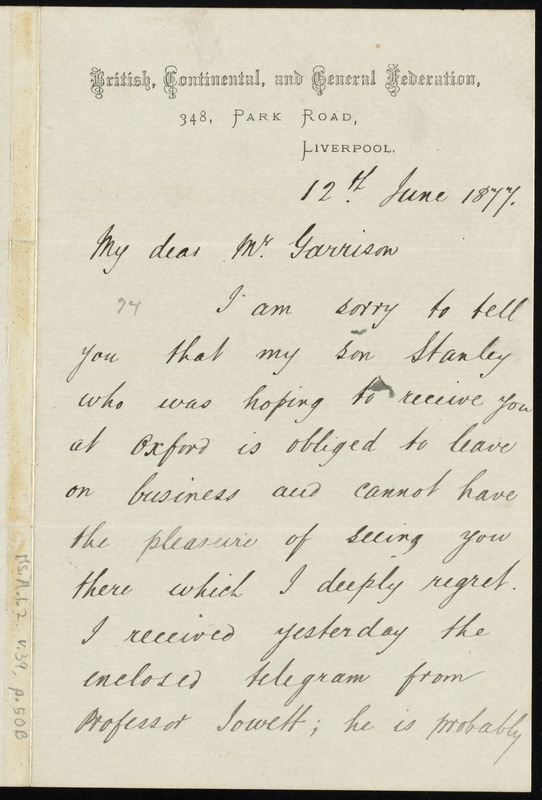 British, Continental, and General Federation,
348, Park Road,
Liverpool.
12th. June 1877.
My dear Mr. Garrison
I am sorry to tell
you that my son Stanley
who was hoping to receive you
at Oxford is obliged to leave
on business and cannot have
the pleasure of seeing you
there which I deeply regret.
I received yesterday the
enclosed telegram from
Professor Jowett; he is probably
Ms.A.1.2 v.39, p.50B